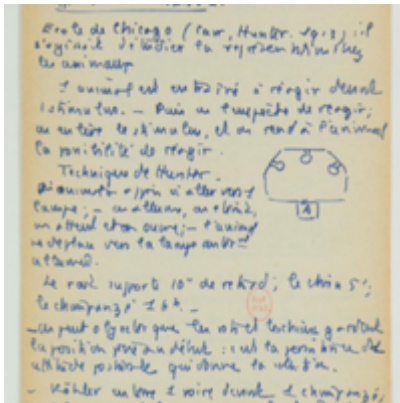 École de Chicago (Carr, Hunter. 1913) il
s'agissait d'étudier la représentation chez
les animaux
L'animal est entraîné à réagir devant
1 stimulus. — Puis on l'empêche de réagir;
on enlève le stimulus, et on rend à l'animal
la possibilité de réagir.
Technique de Hunter.
appris à aller vers 1
lampe; — on allume, on éteint,
on attend et on ouvre; — l'animal
se déplace vers la lampe
allumée.
A
Le rat supporte 10" de retard; le chien 5';
le chimpanzé
— on peut objecter que le rat et le chien gardent
la position prise au début: c'est la persistance de
qui donne la solution.
— Köhler enterre 1 poire devant 1 chimpanzé,